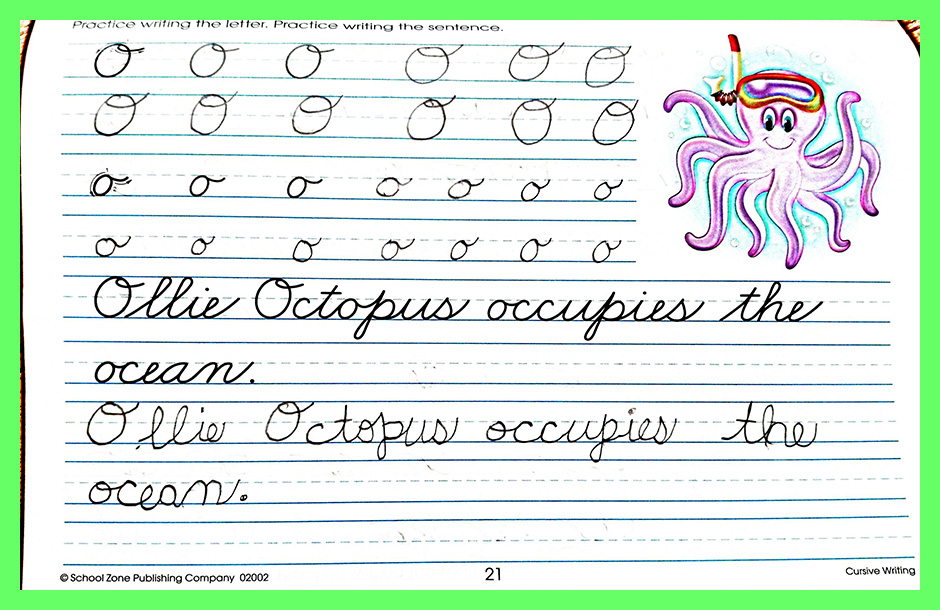 Practice writing the letter. Practice writing the sentence.
O O O O O O
O O O O O O
o o o o o o o
o o o o o o o
Ollie Octopus occupies the
ocean.
Ollie Octopus occupies the
ocean.
© School Zone Publishing Company 02002
21
Cursive Writing